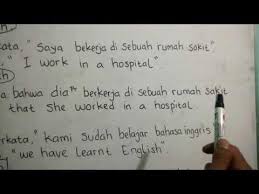 kata, "Saya bekerja di sebuah rumah sakit
" I work in a hospital".
a bahwa dia berkerja di sebuah rumah sakit
that She worked in a hospital
rkata, " kami Sudah belajar bahasa inggris
"we have Learnt English".